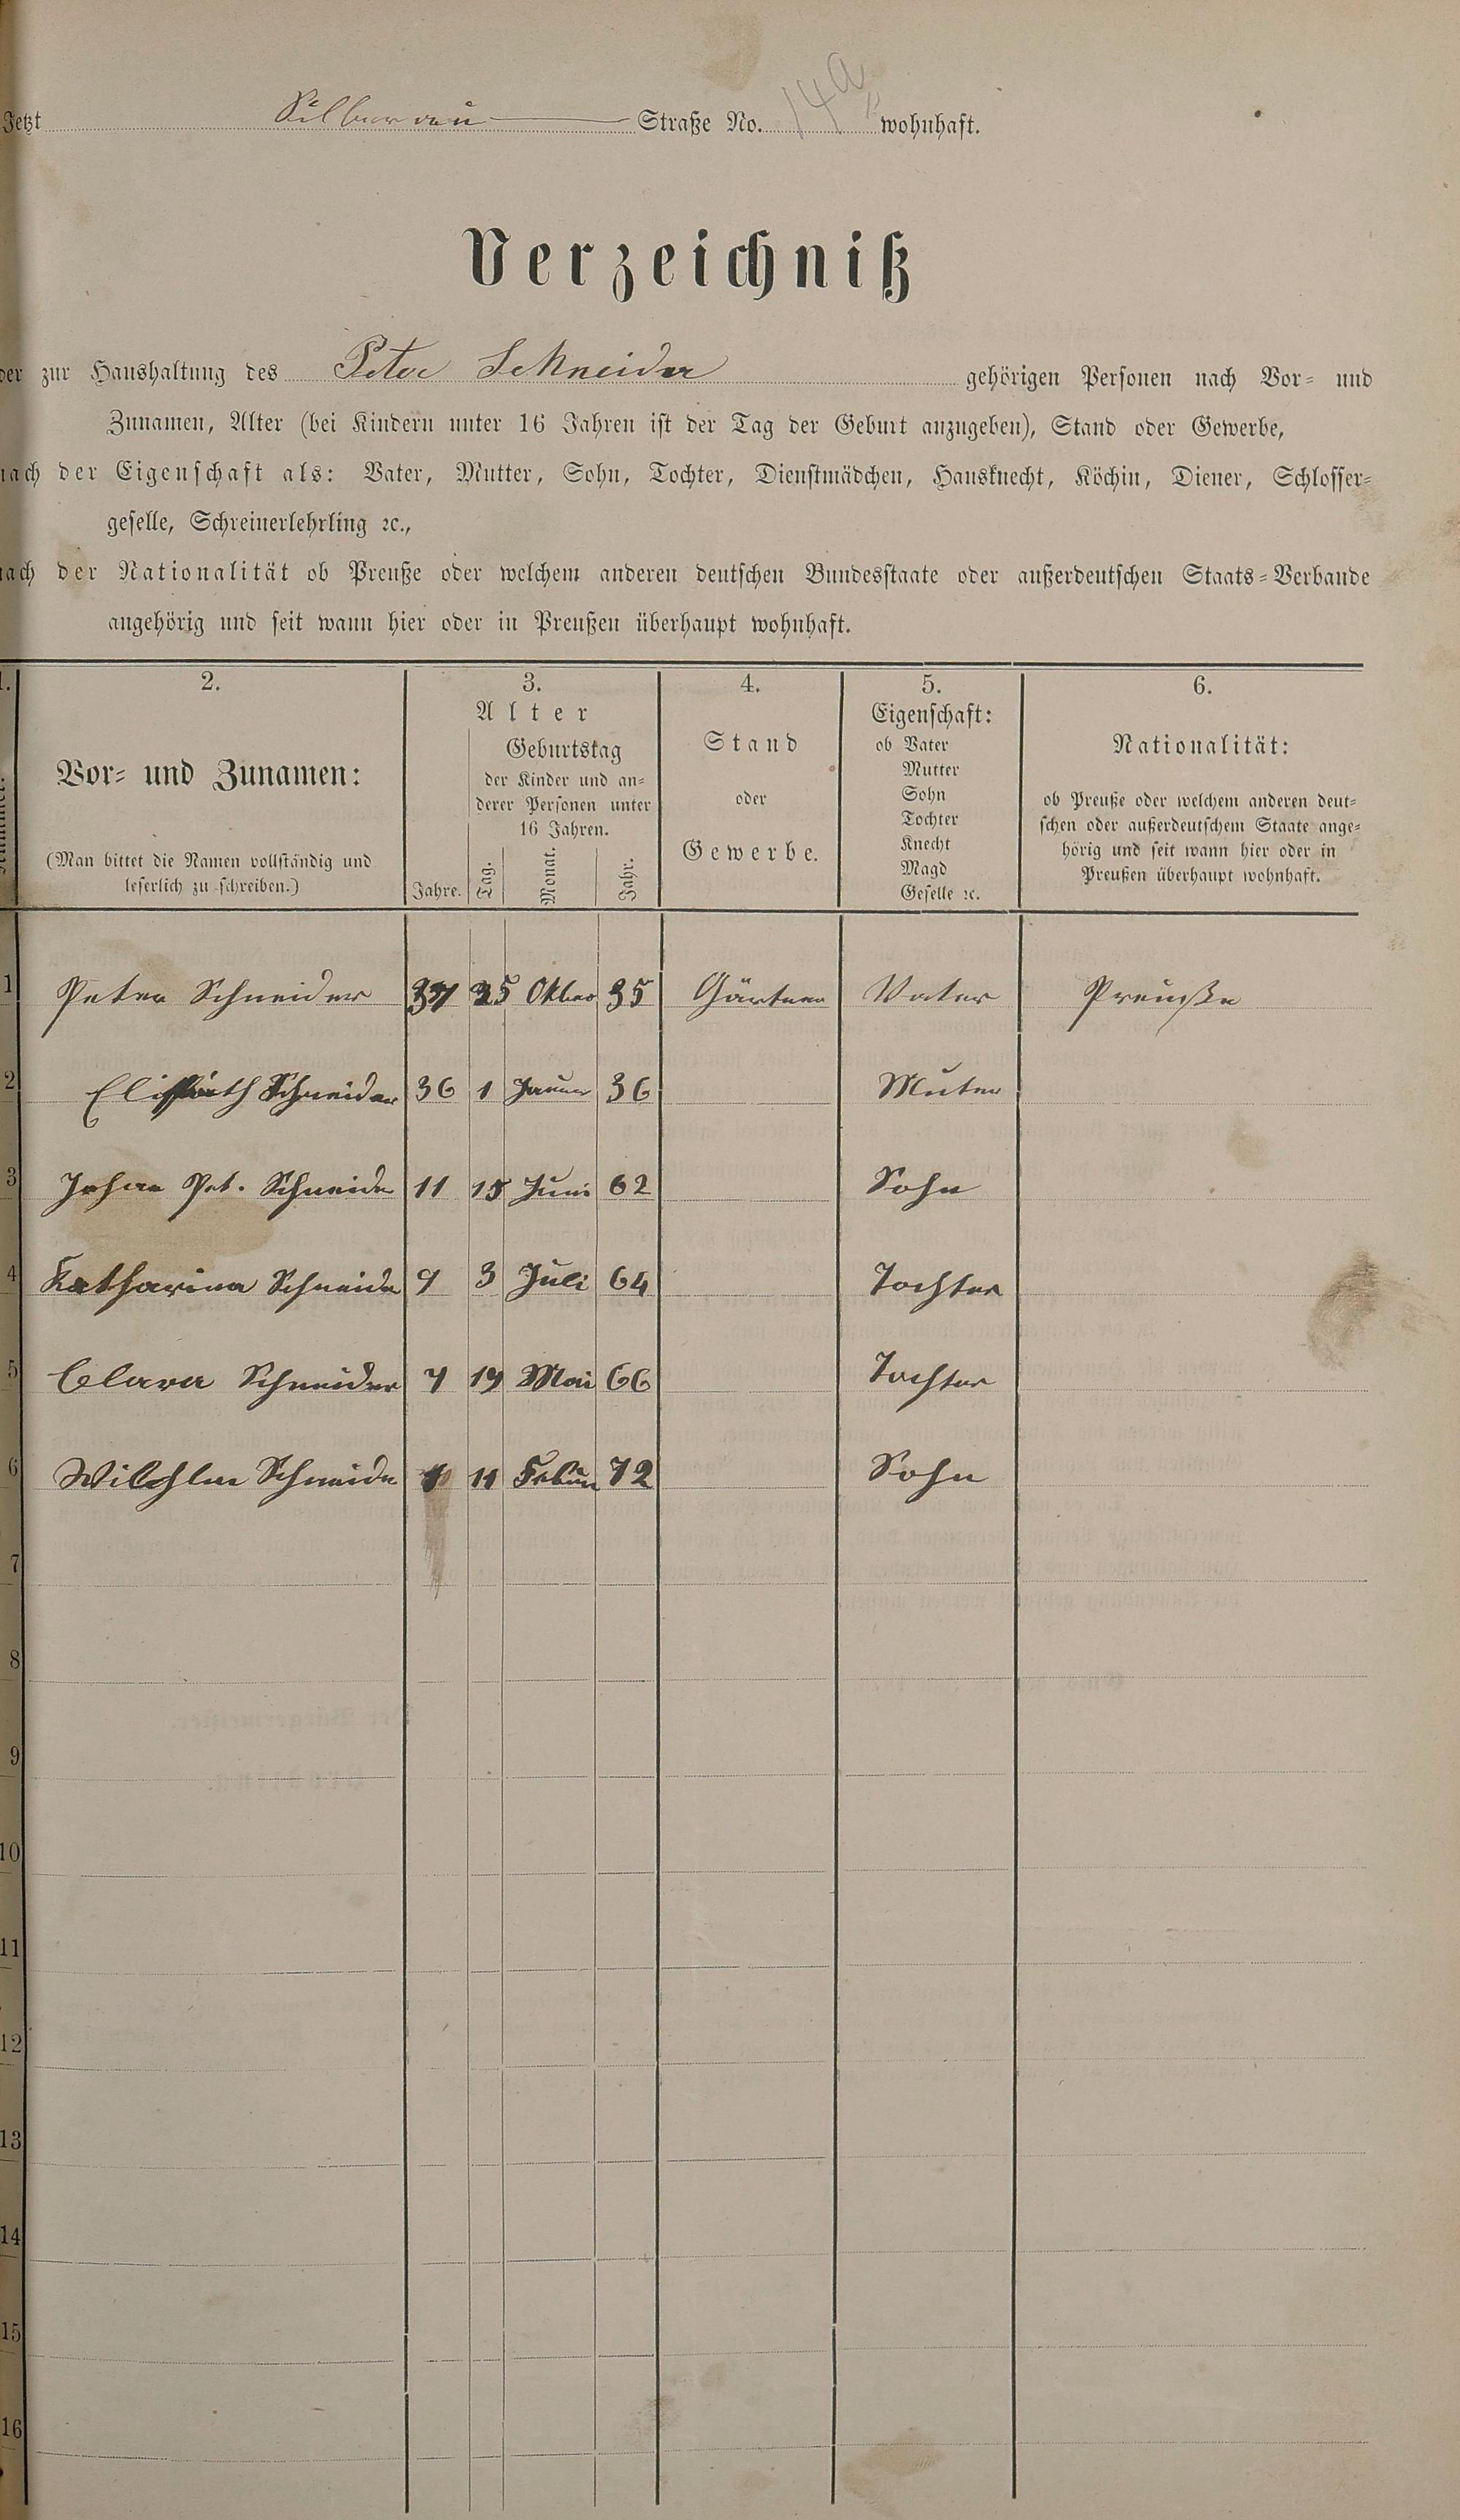 Jetzt Silberau Straße No. 14a wohnhaft.
Verzeichniß
der zur Haushaltung des Peter Schneider gehörigen Personen nach Vor- und
Zunamen, Alter (bei Kindern unter 16 Jahren ist der Tag der Geburt anzugeben), Stand oder Gewerbe,
nach der Eigenschaft als: Vater, Mutter, Sohn, Tochter, Dienstmädchen, Hausknecht, Köchin, Diener, Schlosser-
geselle, Schreinerlehrling ꝛc.,
nach der Nationalität ob Preuße oder welchem anderen deutschen Bundesstaate oder außerdeutschen Staats-Verbande
angehörig und seit wann hier oder in Preußen überhaupt wohnhaft.
1. 2. 3. 4. 5. 6.
Vor- und Zunamen:
(Man bittet die Namen vollständig und
leserlich zu schreiben.)
Alter
Jahre.
Geburtstag
der Kinder und an-
derer Personen unter
16 Jahren.
Tag. Monat. Jahr.
Stand
oder
Gewerbe.
Eigenschaft:
ob Vater
Mutter
Sohn
Tochter
Knecht
Magd
Geselle ꝛc.
Nationalität:
ob Preuße oder welchem anderen deut-
schen oder außerdeutschem Staate ange-
hörig und seit wann hier oder in
Preußen überhaupt wohnhaft.
1 Peter Schneider 37 25 Oktber 35 Gärtner Vater Preuße
2 Elisabeth Schneider 36 1 Januar 36 Muter
3 Johan Pet. Schneider 11 15 Juni 62 Sohn
4 Katharina Schneider 9 3 Juli 64 Tochter
5 Clara Schneider 7 19 Mai 66 Tochter
6 Wilehlm Schneider 1 11 72 Sohn
7
8
9
10
11
12
13
14
15
16